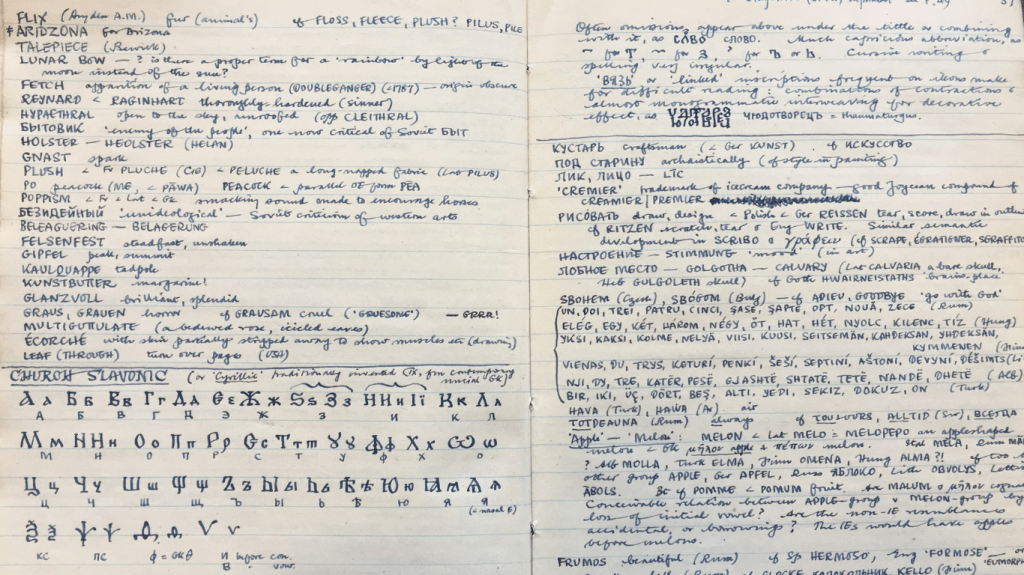 FLIX (Anglo A.M.) fur (animal's) cf FLOSS, FLEECE, PLUSH? PILUS, PILE
ARIDZONA for Arizona
TALEPIECE (Bewick)
LUNAR BOW — ? is there a proper term for a 'rainbow' by light of the
moon instead of the sun?
FETCH apparition of a living person (DOUBLEGANGER) (<1787) — origin obscure
REYNARD < RAGINHART thoroughly hardened (sinner)
HYPAETHRAL open to the sky, unroofed (opp CLEITHRAL)
БЫТОВИК 'enemy of the people', one now critical of Soviet БЫТ
HOLSTER — HEOLSTER (HELAN)
GNAST spark
PLUSH < Fr PLUCHE (C16) < PELUCHE a long-napped fabric (Lat PILUS)
PO peacock (ME, < PĀWA) PEACOCK < parallel OE form PEA
POPPISM < Fr < Lat < Gk smacking sound made to encourage horses
БЕЗИДЕЙНЫЙ 'unideological' — Soviet criticism of western arts
BELEAGUERING — BELAGERUNG
FELSENFEST steadfast, unshaken
GIPFEL peak, summit
KAULQUAPPE tadpole
KUNSTBUTTER margarine!
GLANZVOLL brilliant, splendid
GRAUS, GRAUEN horror cf GRAUSAM cruel ('GRUESOME') — GRRR!
MULTIGUTTULATE (a bedewed rose, icicled eaves)
ÉCORCHÉ with skin partially stripped away to show muscles etc (drawing)
LEAF (THROUGH) turn over pages (USA)
CHURCH SLAVONIC (or 'Cyrillic' traditionally invented C9, from contemporary uncial GK)
Аа Бб Вв Гг Дд Єє Жж Ѕѕ Зз Ии Її Кк Лл
А Б В Г Д Э Ж З И К Л
Мм Нн Оо Пп Рр Сс Тт Ѹѹ Фф Хх Ѡѡ
М Н О П Р С Т У Ф Х О
Цц Чч Шш Щщ Ъъ Ыы Ьь Ѣѣ Юю Ꙗꙗ Ѧѧ
Ц Ч Ш Щ Ъ Ы Ь Ѣ Ю Я Я
(= nasal E)
Ѯѯ Ѱѱ Ѳѳ Ѵѵ
КС ПС Ф = GK θ И before con.
В " vow.
Often omissions appear above under the tittle or combining
with it, as СЛВО СЛОВО. Much capricious abbreviation, as
for Т, for З, for Ъ or Ь. Cursive writing &
spelling very irregular.
'ВЯЗЬ' or 'linked' inscriptions frequent on icons make
for difficult reading: combinations of contractions &
almost monogrammatic interweaving for decorative
effect, as ЧЮДОТВОРЕЦЪ = thaumaturgus.
КУСТАРЬ craftsman (< Ger KUNST) cf ИСКУССТВО
ПОД СТАРИНУ archaistically (of style in painting)
ЛИК, ЛИЦО — LIC
'CREMIER' trademark of icecream company — good Joycean compound of
CREAMIER/PREMIER
РИСОВАТЬ draw, design < Polish < Ger REISSEN tear, score, draw in outline
cf RITZEN scratch, tear & Eng WRITE. Similar semantic
development in SCRIBO & γράφειν (cf SCRAPE, ÉGRATIGNER, SGRAFFITO
НАСТРОЕНИЕ — STIMMUNG 'mood' (in art)
ЛОБНОЕ МЕСТО — GOLGOTHA — CALVARY (Lat CALVARIA a bare skull,
Heb GULGOLETH skull) cf Goth HWAIRNEISTATHS 'brains-place'
SBOHEM (Czech), SBÓGOM (Bulg) — cf ADIEU, GOODBYE 'go with God'
UN, DOI, TREI, PATRU, CINCI, ȘASE, ȘAPTE, OPT, NOUĂ, ZECE (Rum)
ELEG, EGY, KÉT, HÁROM, NÉGY, ÖT, HAT, HÉT, NYOLC, KILENC, TÍZ (Hung)
YKSI, KAKSI, KOLME, NELJÄ, VIISI, KUUSI, SEITSEMÄN, KAHDEKSAN, YHDEKSÄN,
KYMMENEN (Finn
VIENAS, DU, TRYS, KETURÌ, PENKÌ, ŠEŠÌ, SEPTINÌ, AŠTONÌ, DEVYNÌ, DĖŠIMTS (Li
NJI, DY, TRE, KATËR, PESË, GJASHTË, SHTATË, TETË, NANDË, DHETË (Alb)
BIR, IKI, ÜÇ, DÖRT, BEŞ, ALTI, YEDI, SEKIZ, DOKUZ, ON (Turk)
HAVA (Turk), HAWA (Ar) air
TOTDEAUNA (Rum) always cf TOUJOURS, ALLTID (Sw), ВСЕГДА
'Apple' — 'Melon': MELON < Lat MELO = MELOPEPO an appleshaped
melon < GK μῆλον apple & πέπων melon. Ital MELA, Rum MĂR
? Alb MOLLA, Turk ELMA, Finn OMENA, Hung ALMA?! cf too
other group APPLE, Ger APFEL, Russ ЯБЛОКО, Lith OBVOLYS, Lettish
ĀBOLS. Bt cf POMME < POMUM fruit. Are MALUM & μῆλον cognate
Conceivable relation between APPLE-group & MELON-group by
loss of initial vowel? Are the non-IE resemblances
accidental, or borrowings? The IEs would have apples
before melons.
FRUMOS beautiful (Rum) cf Sp HERMOSO, Eng 'FORMOSE' —
CLOCKE КОЛОКОЛЬНИК KELLO (Finn)